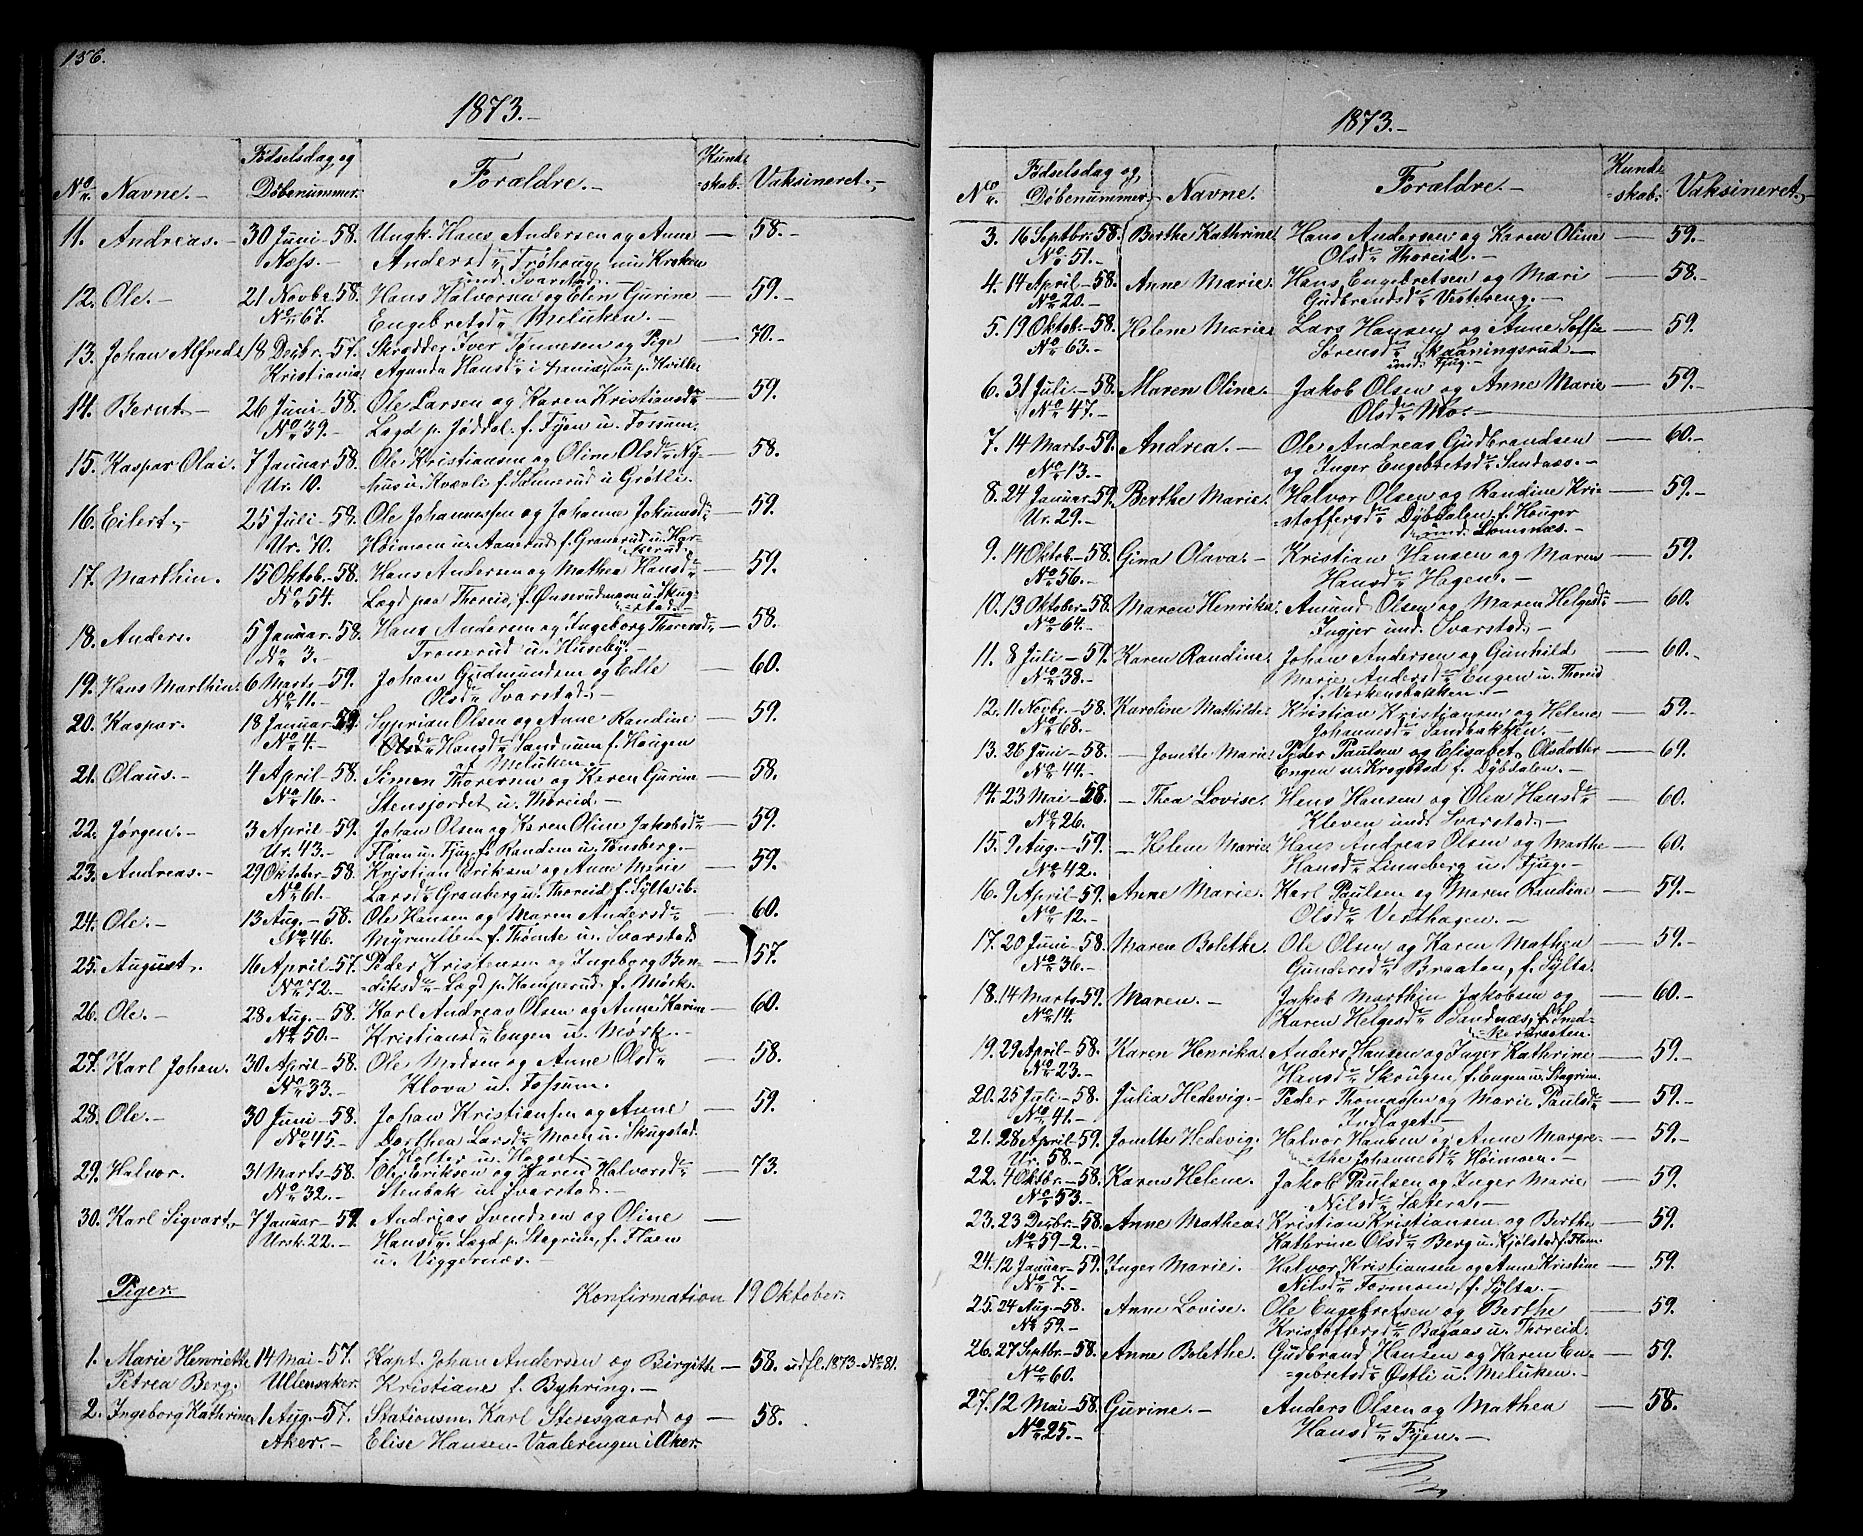 156.
1873.-
No Navne.- Fødselsdag og Døbenummer. Forældre.- Kundskab. Vaksineret.-
11. Andreas.- 30 Juni-58. Ungk. Hans Andersen og Anne — 58.-
Næss.- Andersdr Trøhoug, nu Kroken
und. Svarstad.-
12. Ole.- 21 Novbr. 58. Hans Halvorsen og Elin Gurine — 59.-
No 67. Engebretsdr Meluken.-
13. Johan Alfred 18 Desbr.-57. Skrædder Iver Tønnesen og Pige — 70.-
Kristiania Aganda Hansdr i
14. Bernt.- 26 Juni-58. Ole Larsen og Karen Kristiansdr — 59.
No 39.- Lægd p. Jøddal f. Tyen u. Fossum.
15. Kaspar Olai. 7 Januar 58. Ole Kristiansen og Oline Olsdr Ny- — 58.
Ur. 10. hus u. Kvævli f. Sønnerud u Grøtli.
16. Eilert.- 25 Juli-58. Ole Johannessen og Johanne — 59.
Ur. 70. Høimoen u. Aamerud f. Granerud u. Har-
skerud.
17. Marthin. 15 Oktob.-58. Hans Andersen og Mathea Hansdr — 59.
No 54. Lægd paa Thoreid, f. Ønserudmoen u. Skug-
stad.-
18. Anders. 5 Januar-58. Hans Andersen og Ingeborg Thoresdr — 58.
No 3.- Tronerud u. Huseby.-
19. Hans Marthin. 6 Marts-59. Johan Gudmundsen og Edle — 60.
No 11.- Olsdr Svarstad.-
20. Kaspar. 18 Januar 59. Syprian Olsen og Anne Randine — 59.
No 4. Olsdr Hansdr Sandnum f. Hougen
Meluken.-
21. Olaus.- 4 April-58. Simen Thoresen og Karen Gurine — 58.
No 16.- Stensjordet u. Thoreid.-
22. Jørgen.- 3 April-59. Johan Olsen og Karen Oline Jakobsdr — 59.
Ur. 43.- Flaen u. Tjug, f. Randem u. Tønsberg.-
23. Andreas.- 29 Oktober-58. Kristian Eriksen og Anne Marie — 59.
No 61. Larsdr Granberg u. Thoreid, f. Sylta ib.
24. Ole.- 13 Aug.-58. Ole Hansen og Maren Andersdr — 60.
No 46. Myrmellem f. Tømte u. Svarstad.
25. August.- 16 April-57. Peder Kristensen og Ingeborg Ben- 57.
No 72.- diksdr Lægd p. Kamperud f. Mørk.-
26. Ole.- 28 Aug.-58. Karl Andreas Olsen og Anne Karine — 60.
No 50.- Kristiansdr Engen u. Mørk.-
27. Karl Johan. 30 April-58. Ole Madsen og Anne Olsdr — 58.
No 33.- Klova u. Fossum.
28. Ole.- 30 Juni-58. Johan Kristiansen og Anne — 59.
No 45.- Dorthea Larsdr Moen u. Skugstad.
f. Holter u. Hogset.
29. Halvor. 31 Marts-58. Ole Eriksen og Karen Halvorsdr — 73.
No 32.- Stenbak u. Svarstad.-
30. Karl Sigvart. 7 Januar-59. Andreas Svendsen og Oline —
Ursk. 22.- Hansdr Lægd p. Stagrim, f. Flaen
u. Viggernæs.-
Piger. Konfirmation 19 Oktober.
1. Marie Henriette 14 Mai-57. Kapt. Johan Andersen og Birgitte — 58. udfl. 1873-No 81.
Petrea Berg. Ullensaker. Kristiane f. Byhring.-
2. Ingeborg Kathrine 1 Aug.-57. Stationsm. Karl Steresgaard og — 58.
Aker.- Elise Hansen-Vaalerengen i Aker.
1873.-
No Fødselsdag og Døbenummer. Navne. Forældre.- Kundskab. Vaksineret.-
3. 16 Septbr. 58. Berthe Kathrine. Hans Andersen og Karen Oline — 59.-
No 51.- Olsdr Thoreid.-
4. 14 April-58. Anne Marie. Hans Engebretsen og Mari — 58.
No 20.- Gudbrandsdr Vestereng.-
5. 19 Oktob.-58. Helene Marie. Lars Hansen og Anne Sofie — 59.
No 63.- Sørensdr Skaaningsrud
und. Tjug.-
6. 31 Juli-58. Maren Oline. Jakob Olsen og Anne Marie — 59.-
No 47.- Olsdr Mo.-
7. 14 Marts-59. Andrea.- Ole Andreas Gudbrandsen — 60.-
No 13.- og Inger Engebretsdr Sandnæs.-
8. 24 Januar-59. Berthe Marie. Halvor Olsen og Randine Kri- — 59.-
Ur. 29.- stoffersdr Dybdalen f. Houger
und. Lomsnæs.-
9. 14 Oktob.-58. Gina Olava.- Kristian Hansen og Maren — 59.
No 56.- Hansdr Hagen.-
10. 13 Oktober-58. Maren Henrika. Amund Olsen og Maren Helgesdr — 60.
No 64.- Ingjer und. Svarstad.-
11. 8 Juli-59. Karen Randine. Johan Andersen og Gunhild — 60.
No 38.- Marie Andersdr Engen u. Thoreid
f. Verkensbakken.-
12. 11 Novbr.-58. Karoline Mathilde. Kristian Kristiansen og Helene — 59.-
No 68.- Johannesdr Sandbakken.-
13. 26 Juni-58. Jonette Marie. Peder Paulsen og Elisabet Olsdatter — 69.
No 44.- Engen u. Krogstad, f. Dybdalen.-
14. 23 Mai-58. Thea Lovise. Hans Hansen og Olea Hansdr — 60.
No 26.- Kleven und. Svarstad.-
15. 9 Aug.-59. Helene Marie. Hans Andreas Olsen og Marthe — 60.
No 42.- Hansdr Linneberg u. Tjug.-
16. 9 April-59. Anne Marie. Karl Paulsen og Maren Randine — 59.
No 12.- Olsdr Vesthagen.-
17. 20 Juni-58. Maren Bolethe. Ole Olsen og Karen Mathea — 59.
No 36.- Gundersdr Braaten, f. Sylta.
18. 14 Marts-59. Maren.- Jakob Marthin Jakobsen og — 60.-
No 14. Karen Helgesdr Sandnæs, f. Smed-
kerbraaten.
19. 29 April-58. Karen Henrika. Anders Hansen og Inger Kathrine — 59.-
No 23.- Hansdr Skrugen, f. Engen u. Stagrim.
20. 25 Juli-58. Julia Hedevig.- Peder Thomassen og Marie Paulsdr — 59.-
No 41.- Indlaget.-
21. 28 April-59. Jonette Hedevig. Halvor Hansen og Anne Margre- — 59.
Ur. 58.- the Johannesdr Høimoen.-
22. 4 Oktbr.-58. Karen Helene. Jakob Paulsen og Inger Marie — 59.
No 53.- Nilsdr Sætera.-
23. 23 Desbr.-58. Anne Mathea. Kristian Kristiansen og Berthe — 59.
No 59-2.- Kathrine Olsdr Berg u. Kjølstad f. Flaen.
24. 12 Januar-59. Inger Marie. Halvor Kristiansen og Anne Kristine — 59.
No 7.- Nilsdr Tormoen, f. Sylta.-
25. 24 Aug.-58. Anne Lovise. Ole Engebretsen og Berthe — 59.
No 59.- Kristoffersdr Bagaas u. Thoreid.
26. 27 Septbr-58. Anne Bolethe. Gudbrand Hansen og Karen En- — 59.
No 60. gebretsdr Østli u. Meluken.-
27. 12 Mai-58. Gurine.- Anders Olsen og Mathea — 58.
No 25.- Hansdr Tyen.-